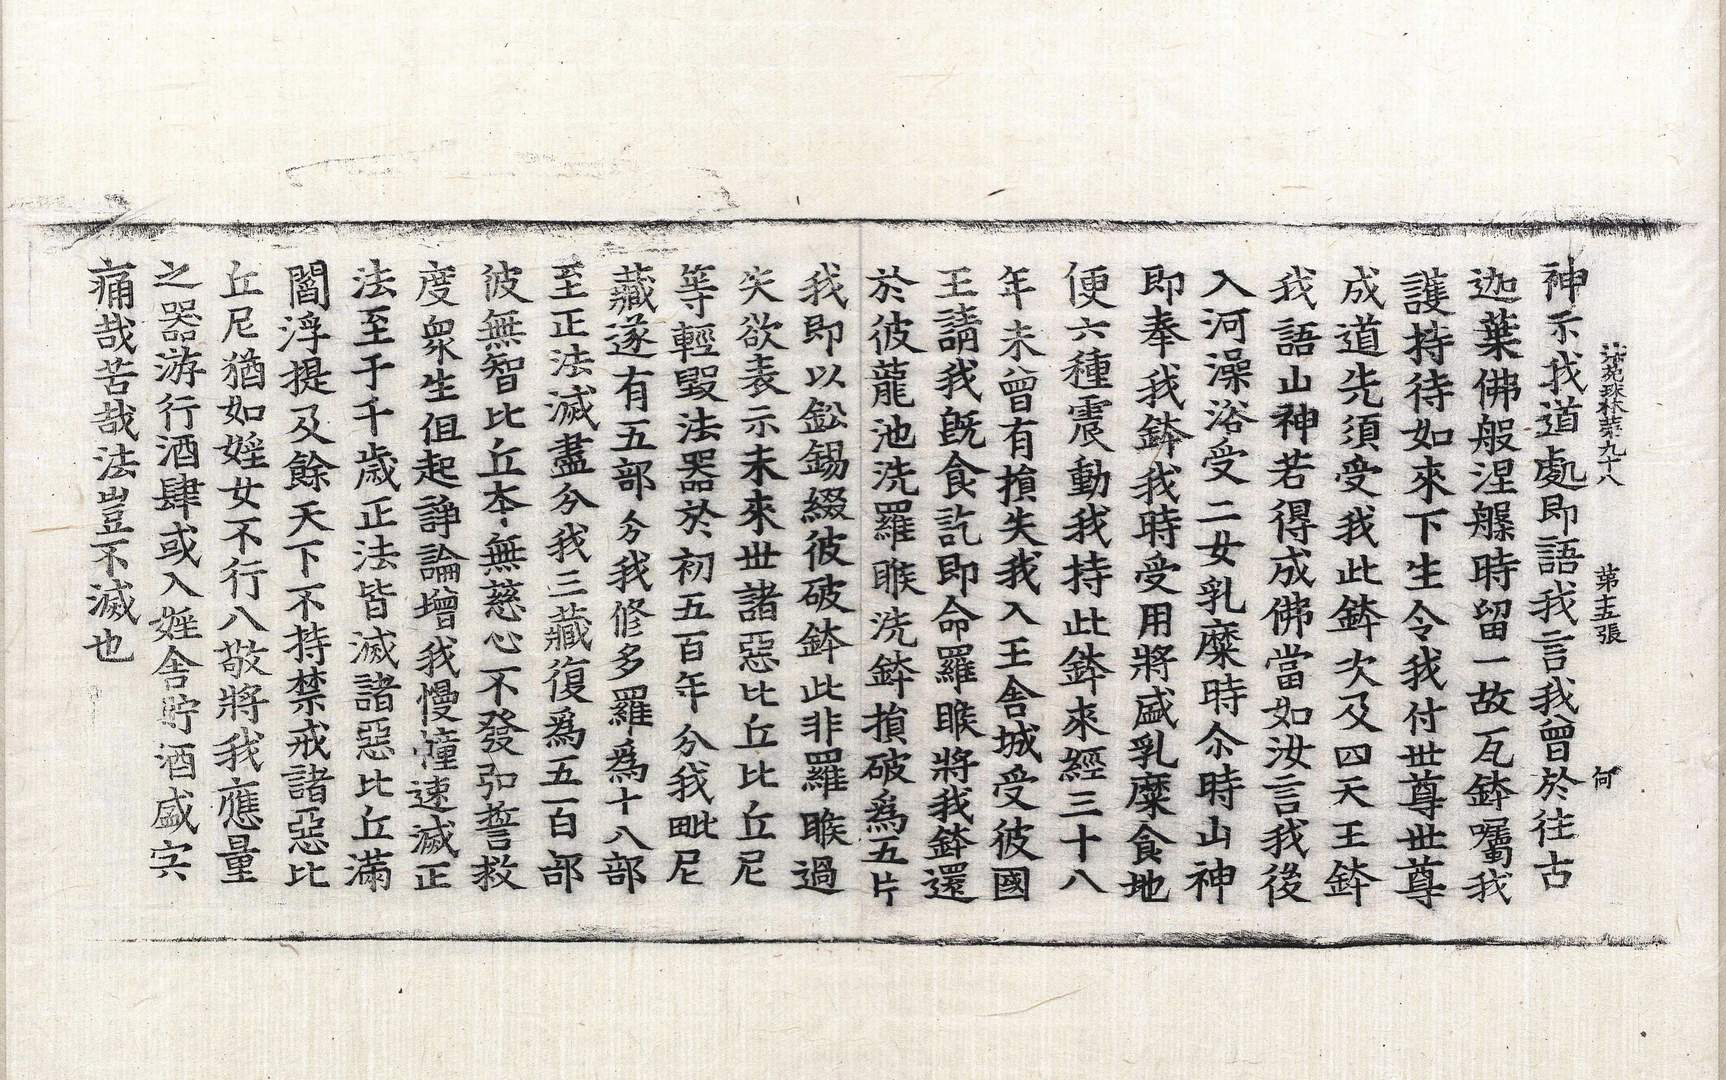 法苑珠林第九十八 第十五張 何
神示我道處即語我言我曾於往古
迦葉佛般涅槃時留一故瓦鉢囑我
護持待如來下生令我付世尊世尊
成道先須受我此鉢次及四天王鉢
我語山神若得成佛當如汝言我後
入河澡浴受二女乳糜時尒時山神
即奉我鉢我時受用將盛乳糜食地
便六種震動我持此鉢來經三十八
年未曾有損失我入王舍城受彼國
王請我旣食訖即命羅睺將我鉢還
於彼龍池洗羅睺洗鉢損破爲五片
我即以鈆錫綴彼破鉢此非羅睺過
失欲表示未來世諸惡比丘比丘尼
等輕毀法器於初五百年分我毗尼
藏遂有五部分我修多羅爲十八部
至正法滅盡分我三藏復爲五百部
彼無智比丘本無慈心不發弘誓救
度衆生但起諍論增我慢幢速滅正
法至于千歲正法皆滅諸惡比丘滿
閻浮提及餘天下不持禁戒諸惡比
丘尼猶如婬女不行八敬將我應量
之器游行酒肆或入婬舍貯酒盛宍
痛哉苦哉法豈不滅也